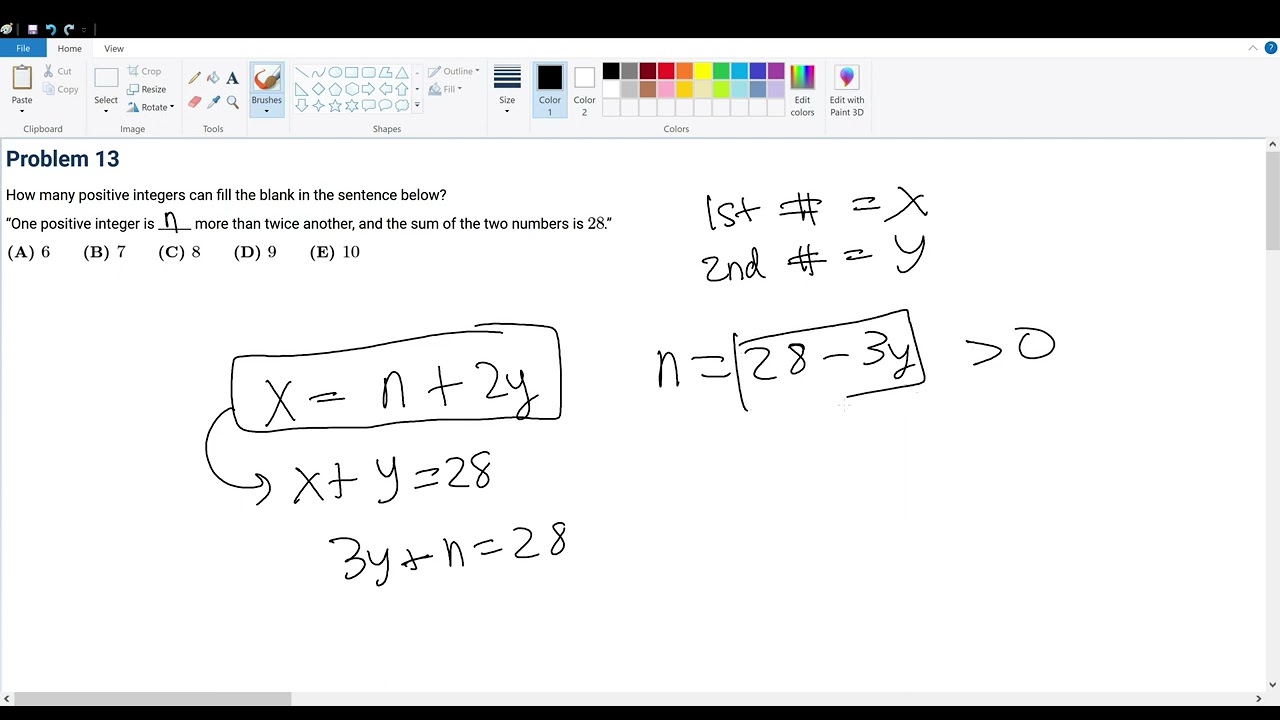 File Home View
Paste Cut Copy Select Crop Resize Rotate Brushes Outline Fill Size Color 1 Color 2 Edit colors Edit with Paint 3D
Clipboard Image Tools Shapes Colors
Problem 13
How many positive integers can fill the blank in the sentence below?
“One positive integer is n more than twice another, and the sum of the two numbers is 28.”
(A) 6 (B) 7 (C) 8 (D) 9 (E) 10
1st # = x
2nd # = y
n = 28 − 3y > 0
x = n + 2y
x + y = 28
3y + n = 28